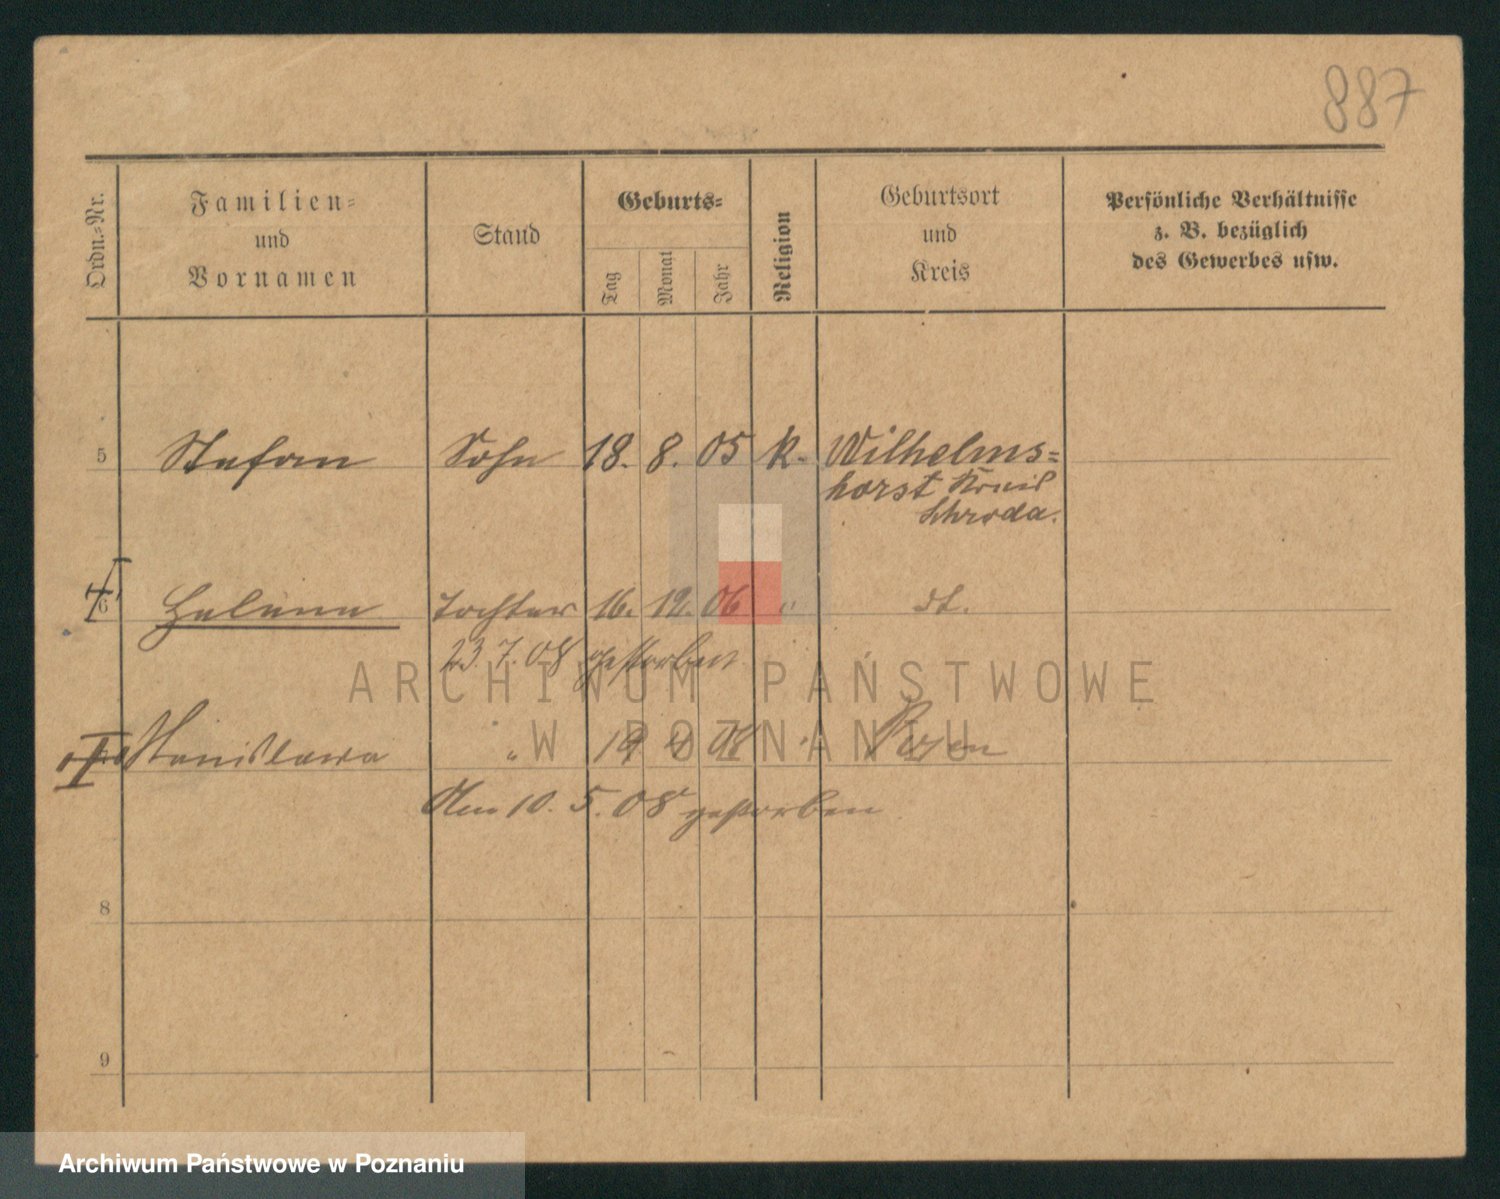 887
Ordn.-Nr.
Familien-
und
Vornamen
Stand
Geburts-
Tag
Monat
Jahr
Religion
Geburtsort
und
Kreis
Persönliche Verhältnisse
z. B. bezüglich
des Gewerbes usw.
5 Stefan Sohn 18. 8. 05 k. Wilhelms-
horst Kreis
Schroda.
6 Helena Tochter 16. 12. 06 " dt.
23. 7. 08 gestorben
Stanislawa " 19 4 08 " Posen
Am 10. 5. 08 gestorben
8
9
ARCHIWUM PAŃSTWOWE
W POZNANIU
Archiwum Państwowe w Poznaniu